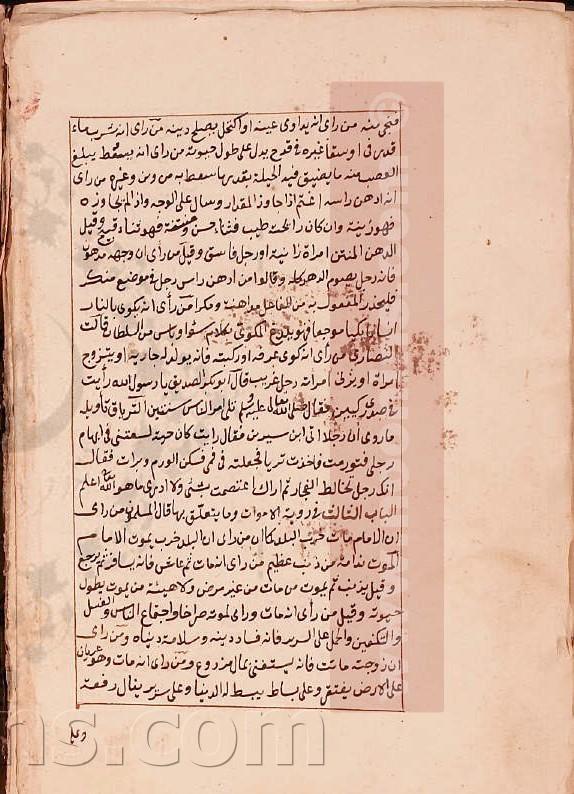 فنجى منه من راى انه يداوى عينه او اكتحل يصلح دينه من راى انه شرب ماء
قدس فى او سقا غيره فى قدح يدل على طول حيوته من راى انه يسعط يبلغ
الغضب منه ما يضيق فيه الحيلة بقدر ما سعط به من دهن وغيره من راى
انه ادهن راسه اغتم اذا جاوز المقدار وسال على الوجه واذا لم يجاوزه
فهو زينة وان كان رائحته طيب فثناء حسن و فهو ثناء قبيح وقيل
الدهن المنتن امراة زانية او رجل فاسق وقيل من راى ان وجهه مدهون
فانه رجل يصوم الدهر كله وقالوا من ادهن راس رجل فى موضع منكر
فليحذر المفعول به من الفاعل مداهنة ومكرا من رأى انه يكوى بالنار
انسانا كيا موجعا فهو يلدغ المكوى بكلام سوء او باس من السلطان قالت
النصارى من راى انه كوى عرقه او ركبته فانه يولد له جارية او يتزوج
امراة او يزنى امراته رجل غريب قال ابو بكر الصديق يا رسول الله رأيت
فى صدرى كيين فقال صلى الله تعالى عليه وسلم تلى امر الناس سنتين الترياق تاويله
ما روى ان رجلا اتى ابن سيرين فقال رايت كان حية لسعتنى فى ابهام
رجلى فتورمت فاخذت تريا فجعلته فى فمى فسكن الورم وبرات فقال
انك رجل تخالط التجار ثم اراك اعتصمت بشئ ولا ادرى ما هو الله اعلم
الباب الثالث فى روية الاموات وما يتعلق بها قال المسلمون من راى
ان الامام مات خرب البلد كما ان من راى ان البلد خرب يموت الامام
الموت ندامة من ذنب عظيم من راى انه مات ثم عاش فانه يسافر ثم يرجع
وقيل يذنب ثم يموت من مات من غير مرض ولا هيئة من يموت يطول
حيوته وقيل من رأى انه مات وراى لموته صراخا واجتماع الناس والغسل
والتكفين والحمل على السرير فانه فساد دينه وسلامة دنياه ومن راى
ان زوجته ماتت فانه يستغنى بمال من زروع ومن راى انه مات وهو عريان
على الارض يفتقر وعلى بساط يبسط له الدنيا وعلى سرير ينال رفعة
ns.com